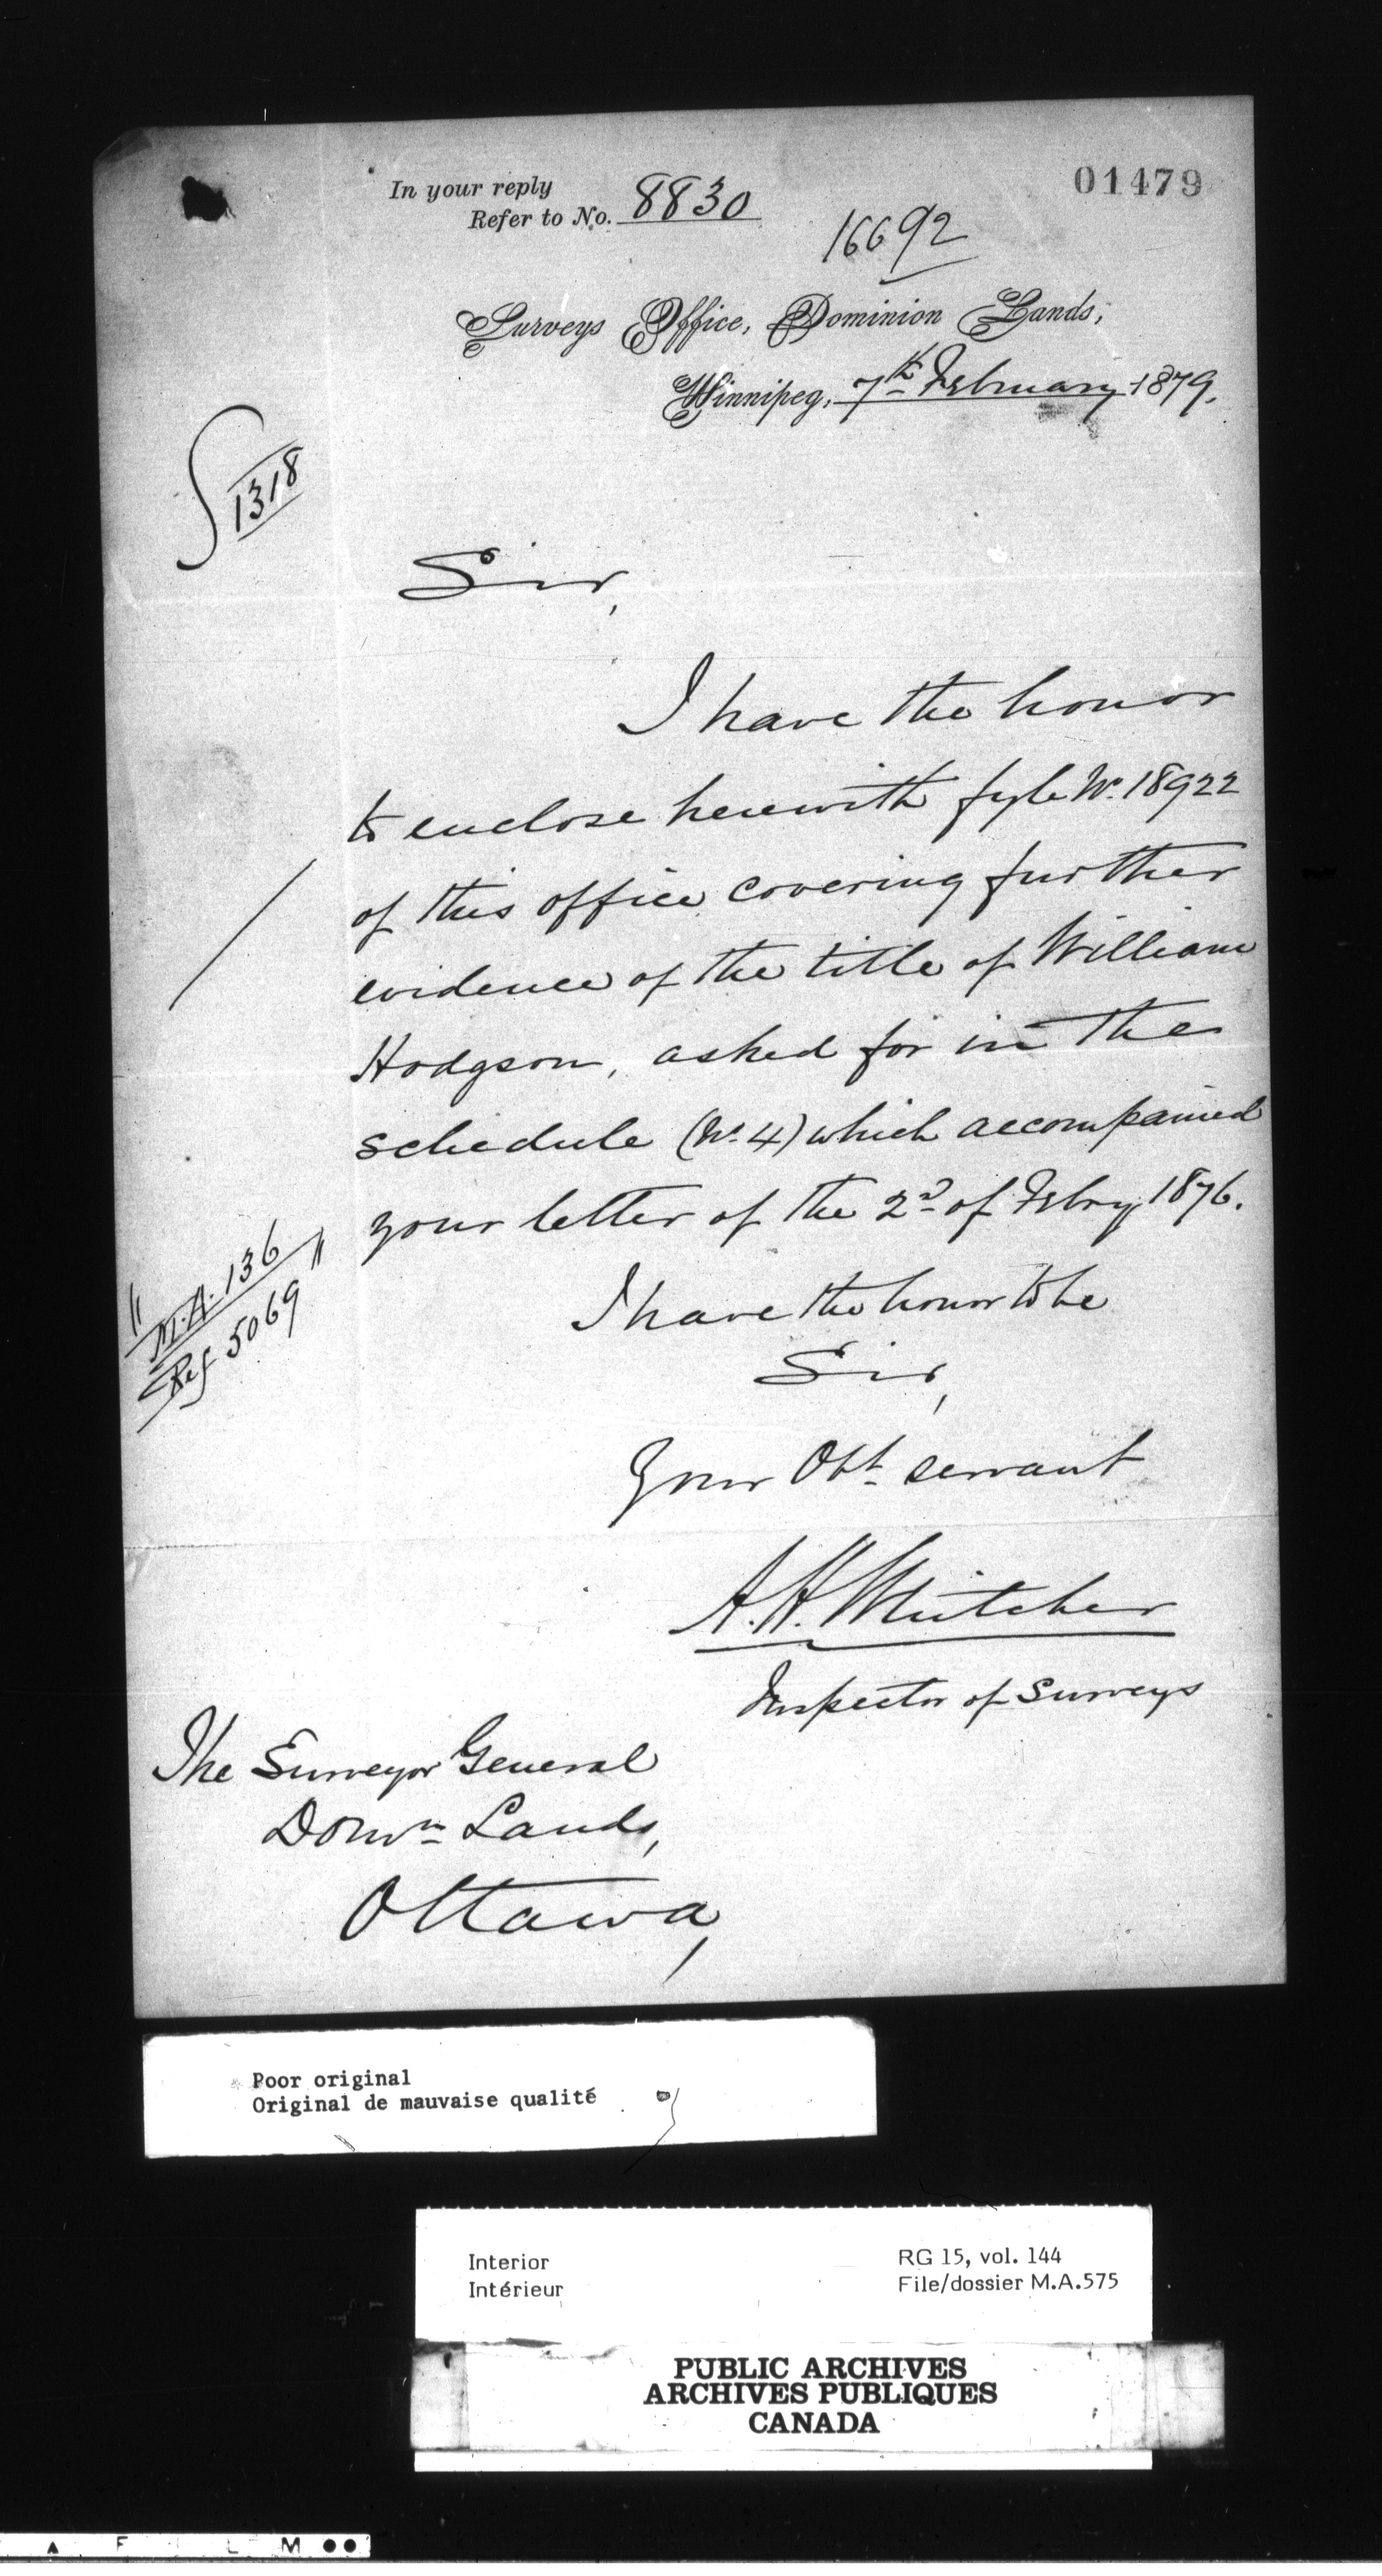 01479
In your reply
Refer to No. 8830
16692
Surveys Office, Dominion Lands,
Winnipeg, 7th February 1879.
1318
Sir,
I have the honor
to enclose herewith fyle No. 18922
of this office covering further
evidence of the title of William
Hodgson, asked for in the
schedule (No. 4) which accompanied
your letter of the 2d of Febry 1876.
" M.A. 136 "
Ref 5069
I have the honor to be
Sir,
Your Obt. servant
A. H. Whitcher
Inspector of Surveys
The Surveyor General
Domn Lands,
Ottawa,
Poor original
Original de mauvaise qualité
Interior
Intérieur
RG 15, vol. 144
File/dossier M.A.575
PUBLIC ARCHIVES
ARCHIVES PUBLIQUES
CANADA
A F I L M